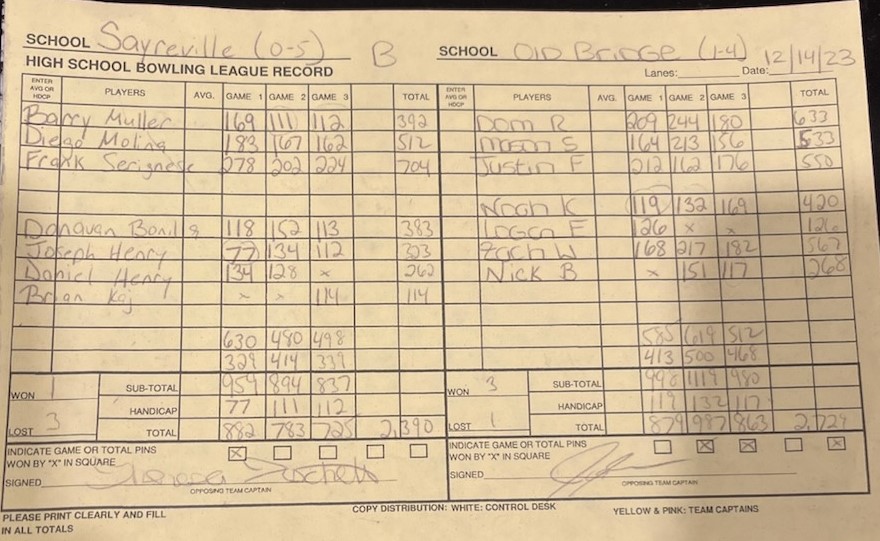 SCHOOL Sayreville (0-5) B SCHOOL Old Bridge (1-4) 12/14/23
HIGH SCHOOL BOWLING LEAGUE RECORD Lanes: Date:
ENTER AVG OR HDCP PLAYERS AVG. GAME 1 GAME 2 GAME 3 TOTAL ENTER AVG OR HDCP PLAYERS AVG. GAME 1 GAME 2 GAME 3 TOTAL
Barry Muller 169 111 112 392 Dom R 209 244 180 633
Diego Molina 183 167 162 512 Mason S 164 213 156 533
Frank Serignese 278 202 224 704 Justin F 212 162 176 550
Noah K 119 132 169 420
Donavan Bonilla 118 152 113 383 Logan F 126 x x 126
Joseph Henry 77 134 112 323 Zach W 168 217 182 567
Daniel Henry 134 128 x 262 Nick B x 151 117 268
Brian Kaj x x 114 114
630 480 498 585 619 512
329 414 339 413 500 468
WON 1 SUB-TOTAL 959 894 837 WON 3 SUB-TOTAL 998 1119 980
HANDICAP 77 111 112 HANDICAP 119 132 117
LOST 3 TOTAL 882 783 725 2,390 LOST 1 TOTAL 879 987 863 2,729
INDICATE GAME OR TOTAL PINS WON BY "X" IN SQUARE X INDICATE GAME OR TOTAL PINS WON BY "X" IN SQUARE X X X
SIGNED SIGNED
OPPOSING TEAM CAPTAIN OPPOSING TEAM CAPTAIN
PLEASE PRINT CLEARLY AND FILL IN ALL TOTALS COPY DISTRIBUTION: WHITE: CONTROL DESK YELLOW & PINK: TEAM CAPTAINS